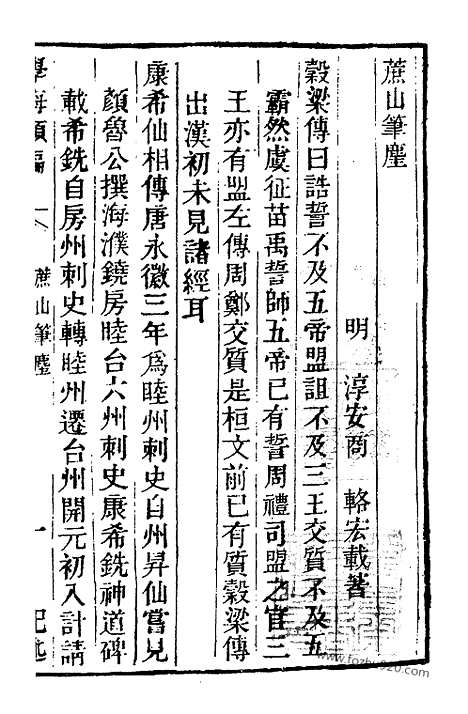 蔗山筆麈
明 淳安商 輅宏載著
穀梁傳曰誥誓不及五帝盟詛不及三王交質不及五
霸然虞征苗禹誓師五帝已有誓周禮司盟之官三
王亦有盟左傳周鄭交質是桓文前已有質穀梁傳
出漢初未見諸經耳
康希仙相傳唐永徽三年爲睦州刺史自州昇仙嘗見
顏魯公撰海濮鐃房睦台六州刺史康希銑神道碑
載希銑自房州刺史轉睦州遷台州開元初入計請
學海類編
蔗山筆麈
一
www.fozhu920.com